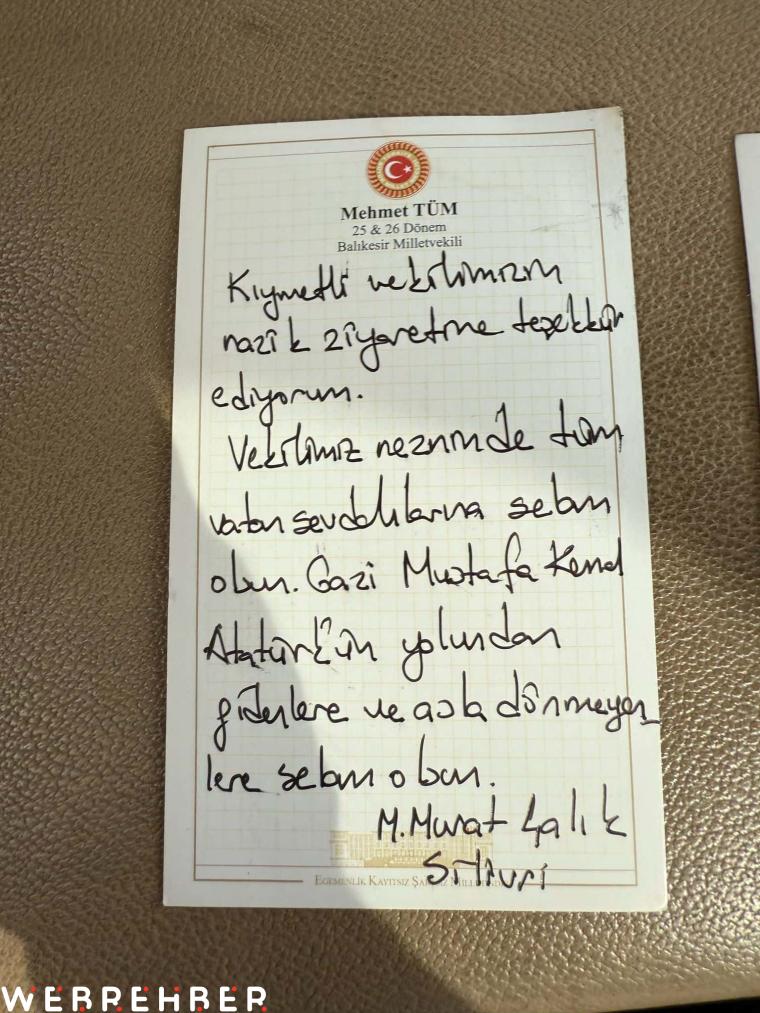 Mehmet TÜM
25 & 26 Dönem
Balıkesir Milletvekili
Kıymetli vekilimizin
nazik ziyaretine teşekkür
ediyorum.
Vekilimiz nezninde tüm
vatan sevdalılarına selam
olsun. Gazi Mustafa Kemal
Atatürk'ün yolundan
gidenlere ve asla dönmeyen_
lere selam olsun.
M. Murat Çalık
Silivri
EGEMENLİK KAYITSIZ
WEBREHBER